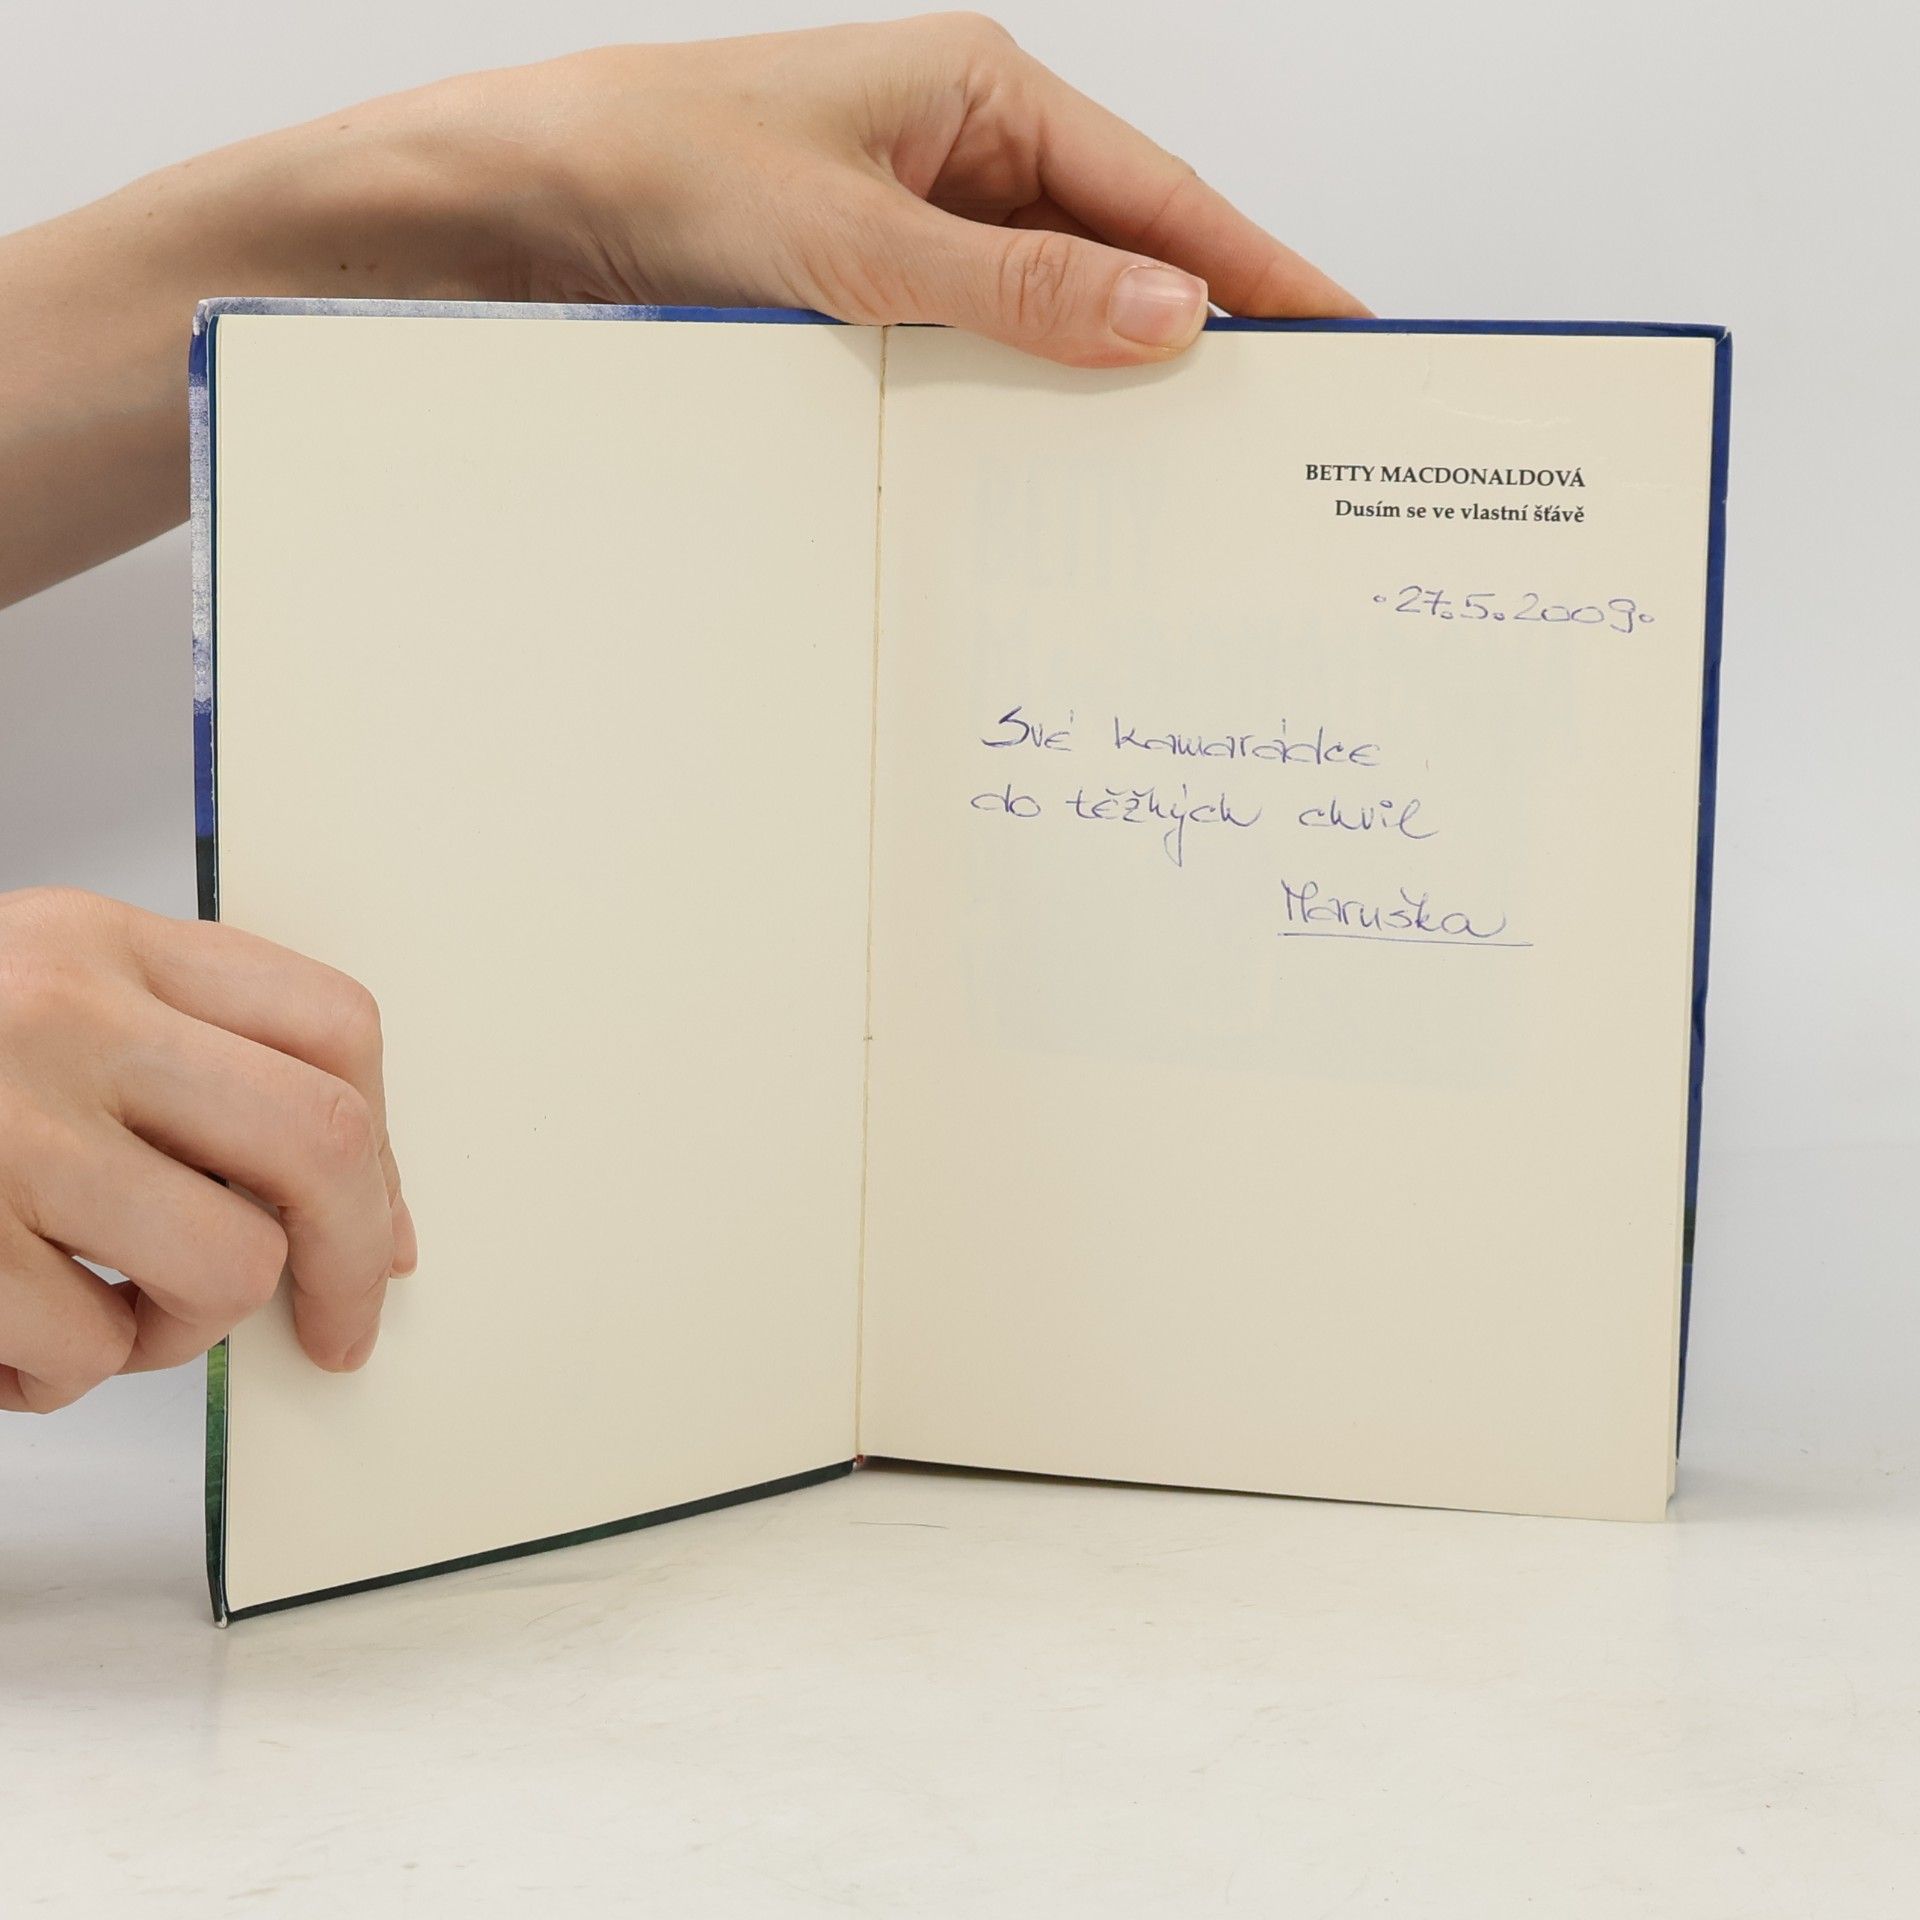 BETTY MACDONALDOVÁ
Dusím se ve vlastní šťávě
·27.5.2009.
Své kamarádce
do těžkých chvil
Maruška